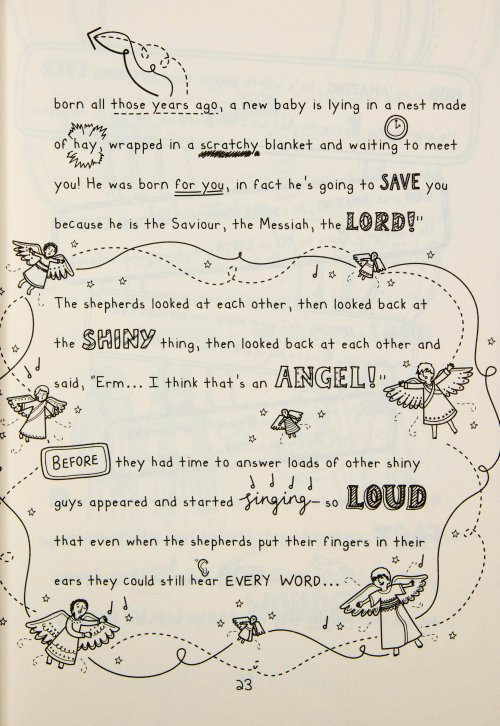 born all those years ago, a new baby is lying in a nest made
of hay, wrapped in a scratchy blanket and waiting to meet
you! He was born for you, in fact he's going to SAVE you
because he is the Saviour, the Messiah, the LORD!"
The shepherds looked at each other, then looked back at
the SHINY thing, then looked back at each other and
said, "Erm... I think that's an ANGEL!"
BEFORE they had time to answer loads of other shiny
guys appeared and started singing – so LOUD
that even when the shepherds put their fingers in their
ears they could still hear EVERY WORD...
23